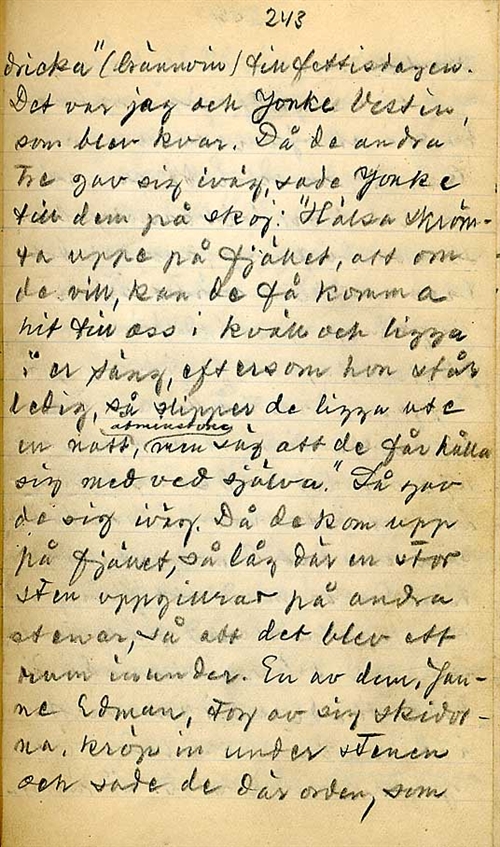 243
dricka" (brännvin) till fettisdagen.
Det var jag och Jonke Vestin,
som blev kvar. Då de andra
tre gav sig iväg, sade Jonke
till dem på skoj: "Hälsa skröm-
ta uppe på fjället, att om
de vill, kan de få komma
hit till oss i kväll och ligga
i er säng, eftersom hon står
ledig, så slipper de ligga ute
åtminstone
en natt, men säg att de får hålla
sig med ved själva." Så gav
de sig iväg. Då de kom upp
på fjället, så låg där en stor
sten uppgillrad på andra
stenar, så att det blev ett
rum inunder. En av dem, Jan-
ne Edman, tog av sig skidor-
na, kröp in under stenen
och sade de där orden, som